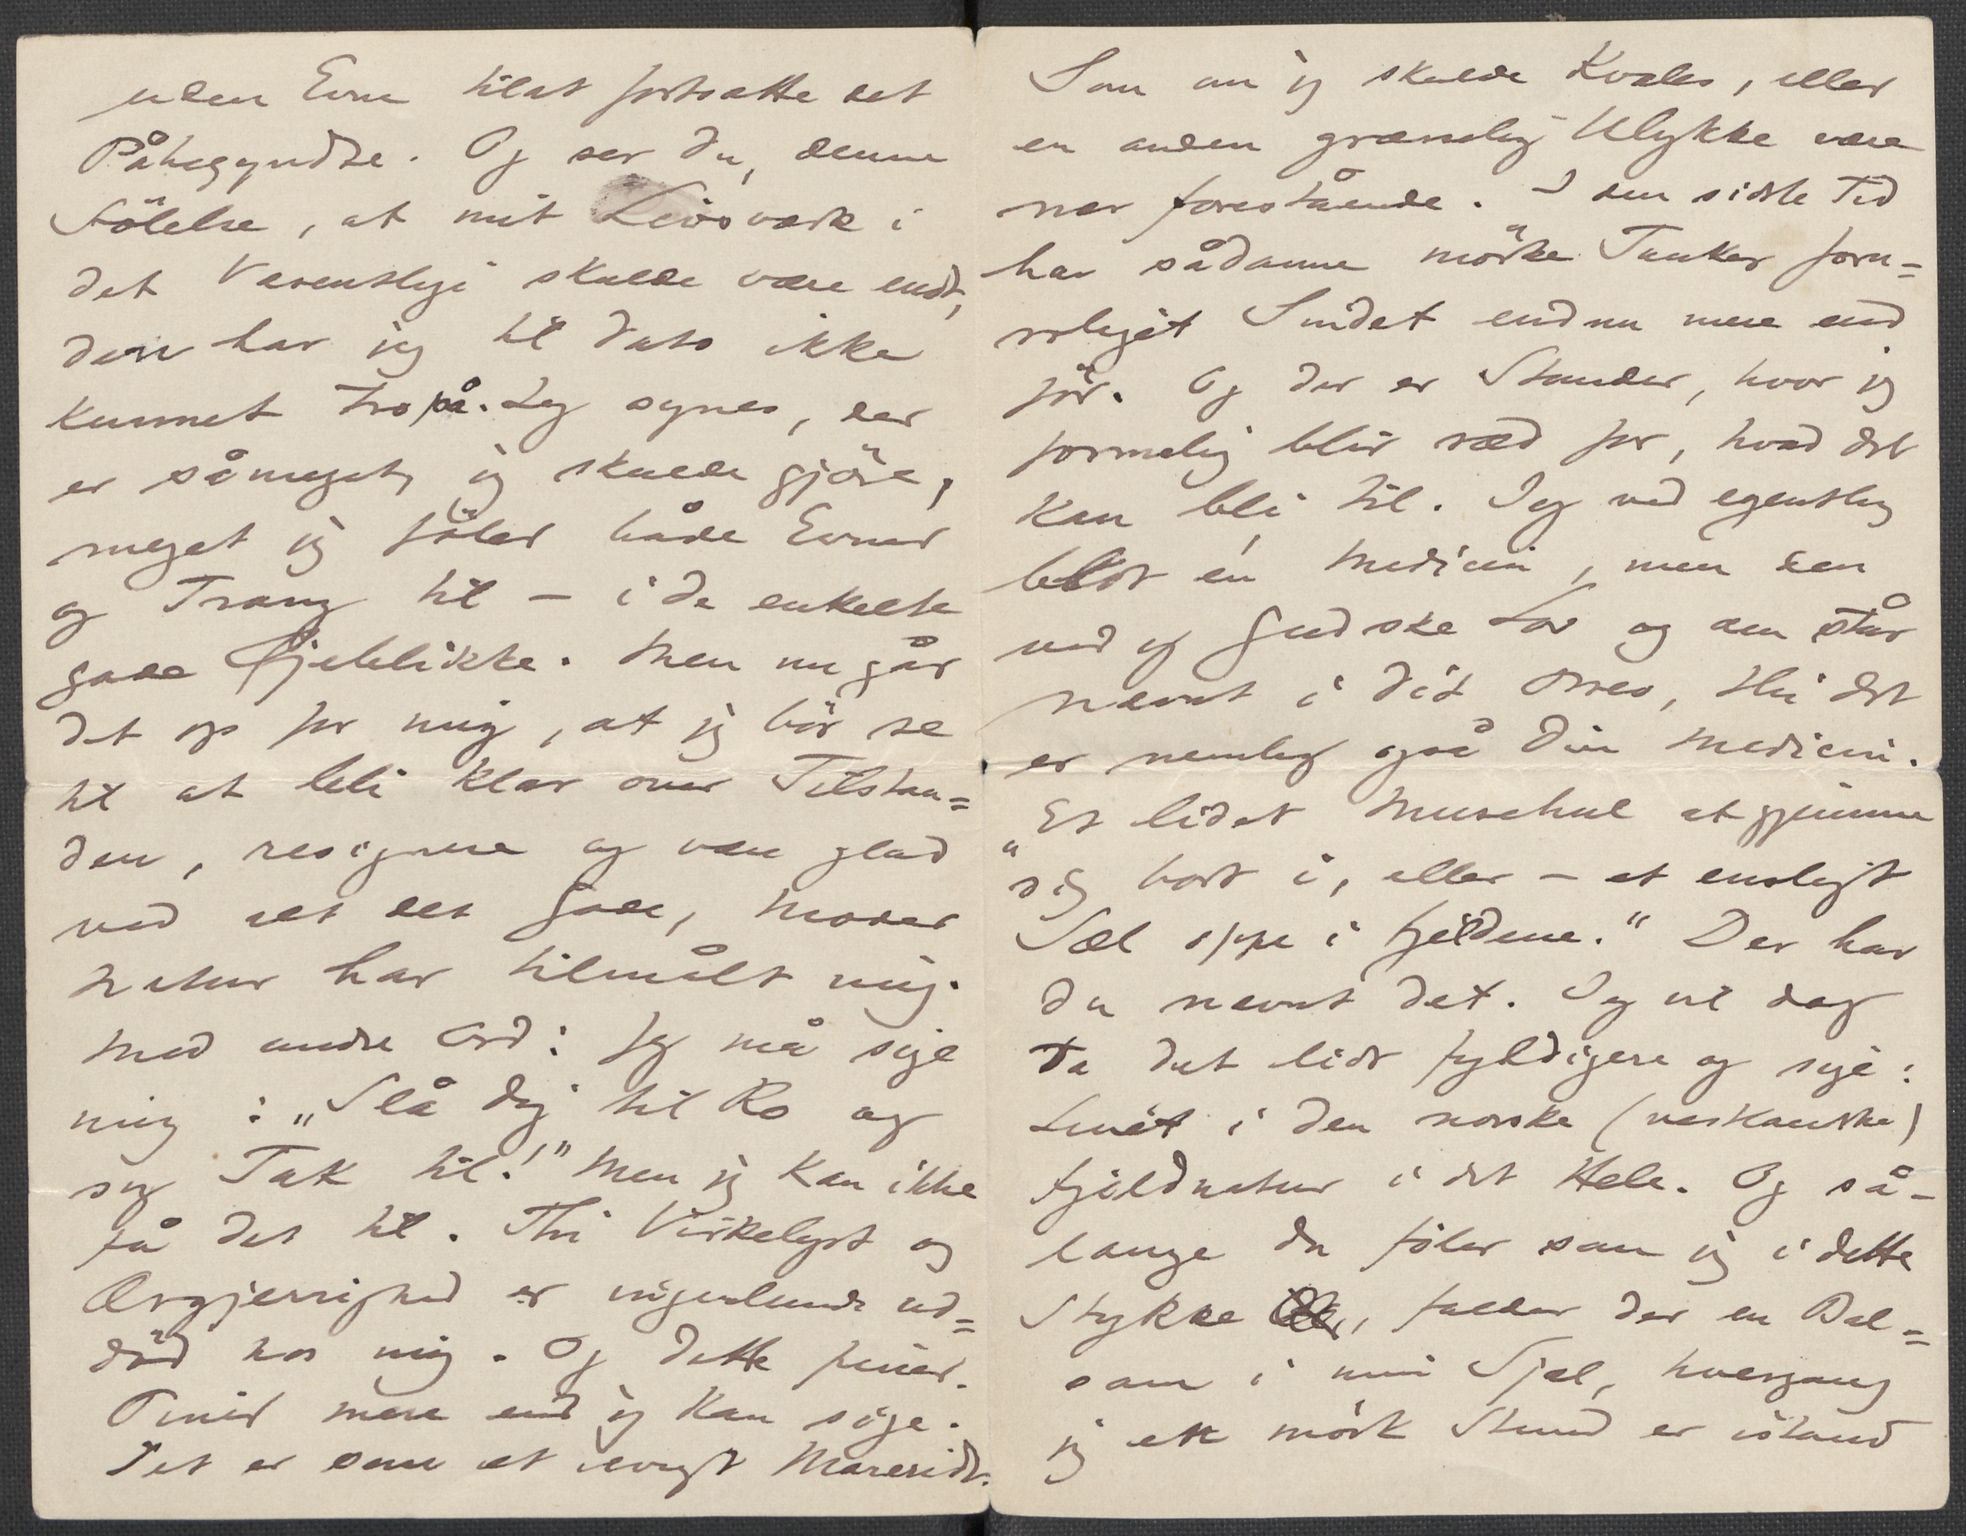 uden Evne tilat fortsætte det
Påbegyndte. Og ser du, denne
Følelse, at mit Livsværk i
det Væsentlige skulde være endt,
den har jeg til Dato ikke
kunnet tro på. Jeg synes, der
er såmeget, jeg skulde gjöre,
meget jeg föler både Evner
og Trang til – i de enkelte
gode Øjeblikke. Men nu går
det op for mig, at jeg bör se
til at bli klar over Tilstan=
den, resignere og være glad
ved alt det Gode, Moder
Natur har tilmålt mig.
Med andre Ord: Jeg må sige
mig: „Slå dig til Ro og
sig Tak til!" Men jeg kan ikke
få det til. Thi Virkelyst og
Ærgjerrighed er ingenlunde ud=
död hos mig. Og dette piner.
Piner mere end jeg kan sige.
Det er som et evigt Mareridt.
Som om jeg skulde Kvæles, eller
en anden græmelig Ulykke være
nær forestående. I den sidste Tid
har sådanne mörke Tanker foru=
roliget Sindet endnu mere end
för. Og der er Stunder, hvor jeg
formelig blir ræd for, hvad det
kan bli til. Jeg ved egentlig
blot én Medicin, men den
ved jeg Gud ske Lov og den står
nævnt i dit Brev, thi det
er nemlig også Din Medicin.
„Et lidet Musehul at gjemme
„sig bort i, eller – et ensligt
Sæl oppe i Fjeldene." Der har
du nævnt det. Jeg vil dog
ta det lidt fyldigere og sige:
Livet i den norske (vestlandske)
Fjeldnatur i det Hele. Og så-
længe du föler som jeg i dette
Stykke, falder der en Bal=
sam i min Sjæl, hvergang
jeg ett mörk Stund er istand